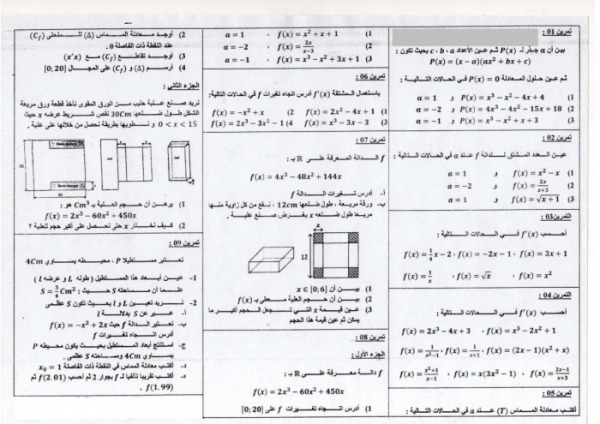 تمرين 01 :
بين أن α جذر لـ P(x) ثم عين الأعداد a ، b ، c بحيث تكون :
P(x) = (x − α)(ax² + bx + c)
ثم عين حلول المعادلة P(x) = 0 في الحالات التالية :
1) P(x) = x³ − x² − 4x + 4 و α = 1
2) P(x) = 4x³ − 4x² − 15x + 18 و α = −2
3) P(x) = x³ − x² + x + 3 و α = −1
تمرين 02 :
عين العدد المشتق للدالة f عند α في الحالات التالية :
1) f(x) = x² − x و α = 1
2) f(x) = 2x/(x+3) و α = −2
3) f(x) = √x + 1 و α = 1
التمرين03 :
أحسب f′(x) في الحالات التالية :
f(x) = 3x + 1 ، f(x) = −2x − 1 ، f(x) = ¼x − 2
f(x) = x² ، f(x) = √x ، f(x) = 1/x
تمرين 04 :
أحسب f′(x) في الحالات التالية :
f(x) = x³ − 2x² + 1 ، f(x) = 2x³ − 4x + 3
f(x) = (2x − 1)(x² + x) ، f(x) = 1/(x+1) ، f(x) =
f(x) = (2x−1)/(x+3) ، f(x) = x(3x² − 1) ، f(x) = (x²+1)/(x−1)
تمرين 05 :
أكتب معادلة المماس (T) عند α في الحالات التالية :
1) f(x) = x² + x + 1 ، α = 1
2) f(x) = 2x/(x−3) ، α = −2
3) f(x) = x³ − x² + 3x + 1 ، α = −1
تمرين 06 :
باستعمال المشتقة f′(x) أدرس اتجاه تغيرات f في الحالات التالية :
1) f(x) = 2x² − 4x + 1 2) f(x) = −x² + x
3) f(x) = x³ − 3x − 3 4) f(x) = 2x³ − 3x² − 1
تمرين 07 :
f الدالة المعرفة على ℝ بـ :
f(x) = 4x³ − 48x² + 144x
أ- أدرس تغيرات الدالة f
ب- ورقة مربعة ، طول ضلعها 12cm ، نقع من كل زاوية منها
مربعا طول ضلعه x بغرض صنع علبة .
x
12
1) بين أن x ∈ [0; 6]
2) بين أن حجم العلبة معطى بـ f(x)
3) عين قيمة x التي تجعل الحجم أكبر ما
يمكن ثم عين قيمة هذا الحجم
تمرين 08 :
الجزء الأول :
f دالة معرفة على ℝ بـ :
f(x) = 2x³ − 60x² + 450x
1) أدرس اتجاه تغيرات f على [0; 20]
2) أوجد معادلة المماس (Δ) للمنحنى (Cf)
عند النقطة ذات الفاصلة 0 .
3) أوجد تقاطع (Cf) مع (x′x)
4) أرسم (Δ) و (Cf) على المجال [0; 20]
الجزء الثاني :
نريد صنع علبة حليب من الورق المقوى نأخذ قطعة ورق مربعة
الشكل طول ضلعها 30Cm نقص شريط عرضه x حيث
0 < x < 15 و نطويها بطريقة نحصل من خلالها على علبة .
1) برهن أن حجم العلبة بـ Cm³ هو :
f(x) = 2x³ − 60x² + 450x
2) كيف نختار x حتى نحصل على أكبر حجم للعلبة ؟
تمرين 09 :
نعتبر مستطيلا P ، محيطه يساوي 4Cm
1- عين أبعاد هذا المستطيل ( طوله L و عرضه l )
2- نريد تعيين L و l بحيث تكون S عظمى
أ- عبر عن S بدلالة l
ب- نعتبر الدالة f حيث f(x) = −x² + 2x
أدرس اتجاه تغيرات f
ج- استنتج أبعاد المستطيل بحيث يكون محيطه P
يساوي 4Cm ومساحته S عظمى .
د- أكتب معادلة المماس في النقطة ذات الفاصلة x₀ = 1
ه- أكتب تقريبا تآلفيا لـ f بجوار 2 ثم أحسب f(2.01) ثم
f(1.99) .